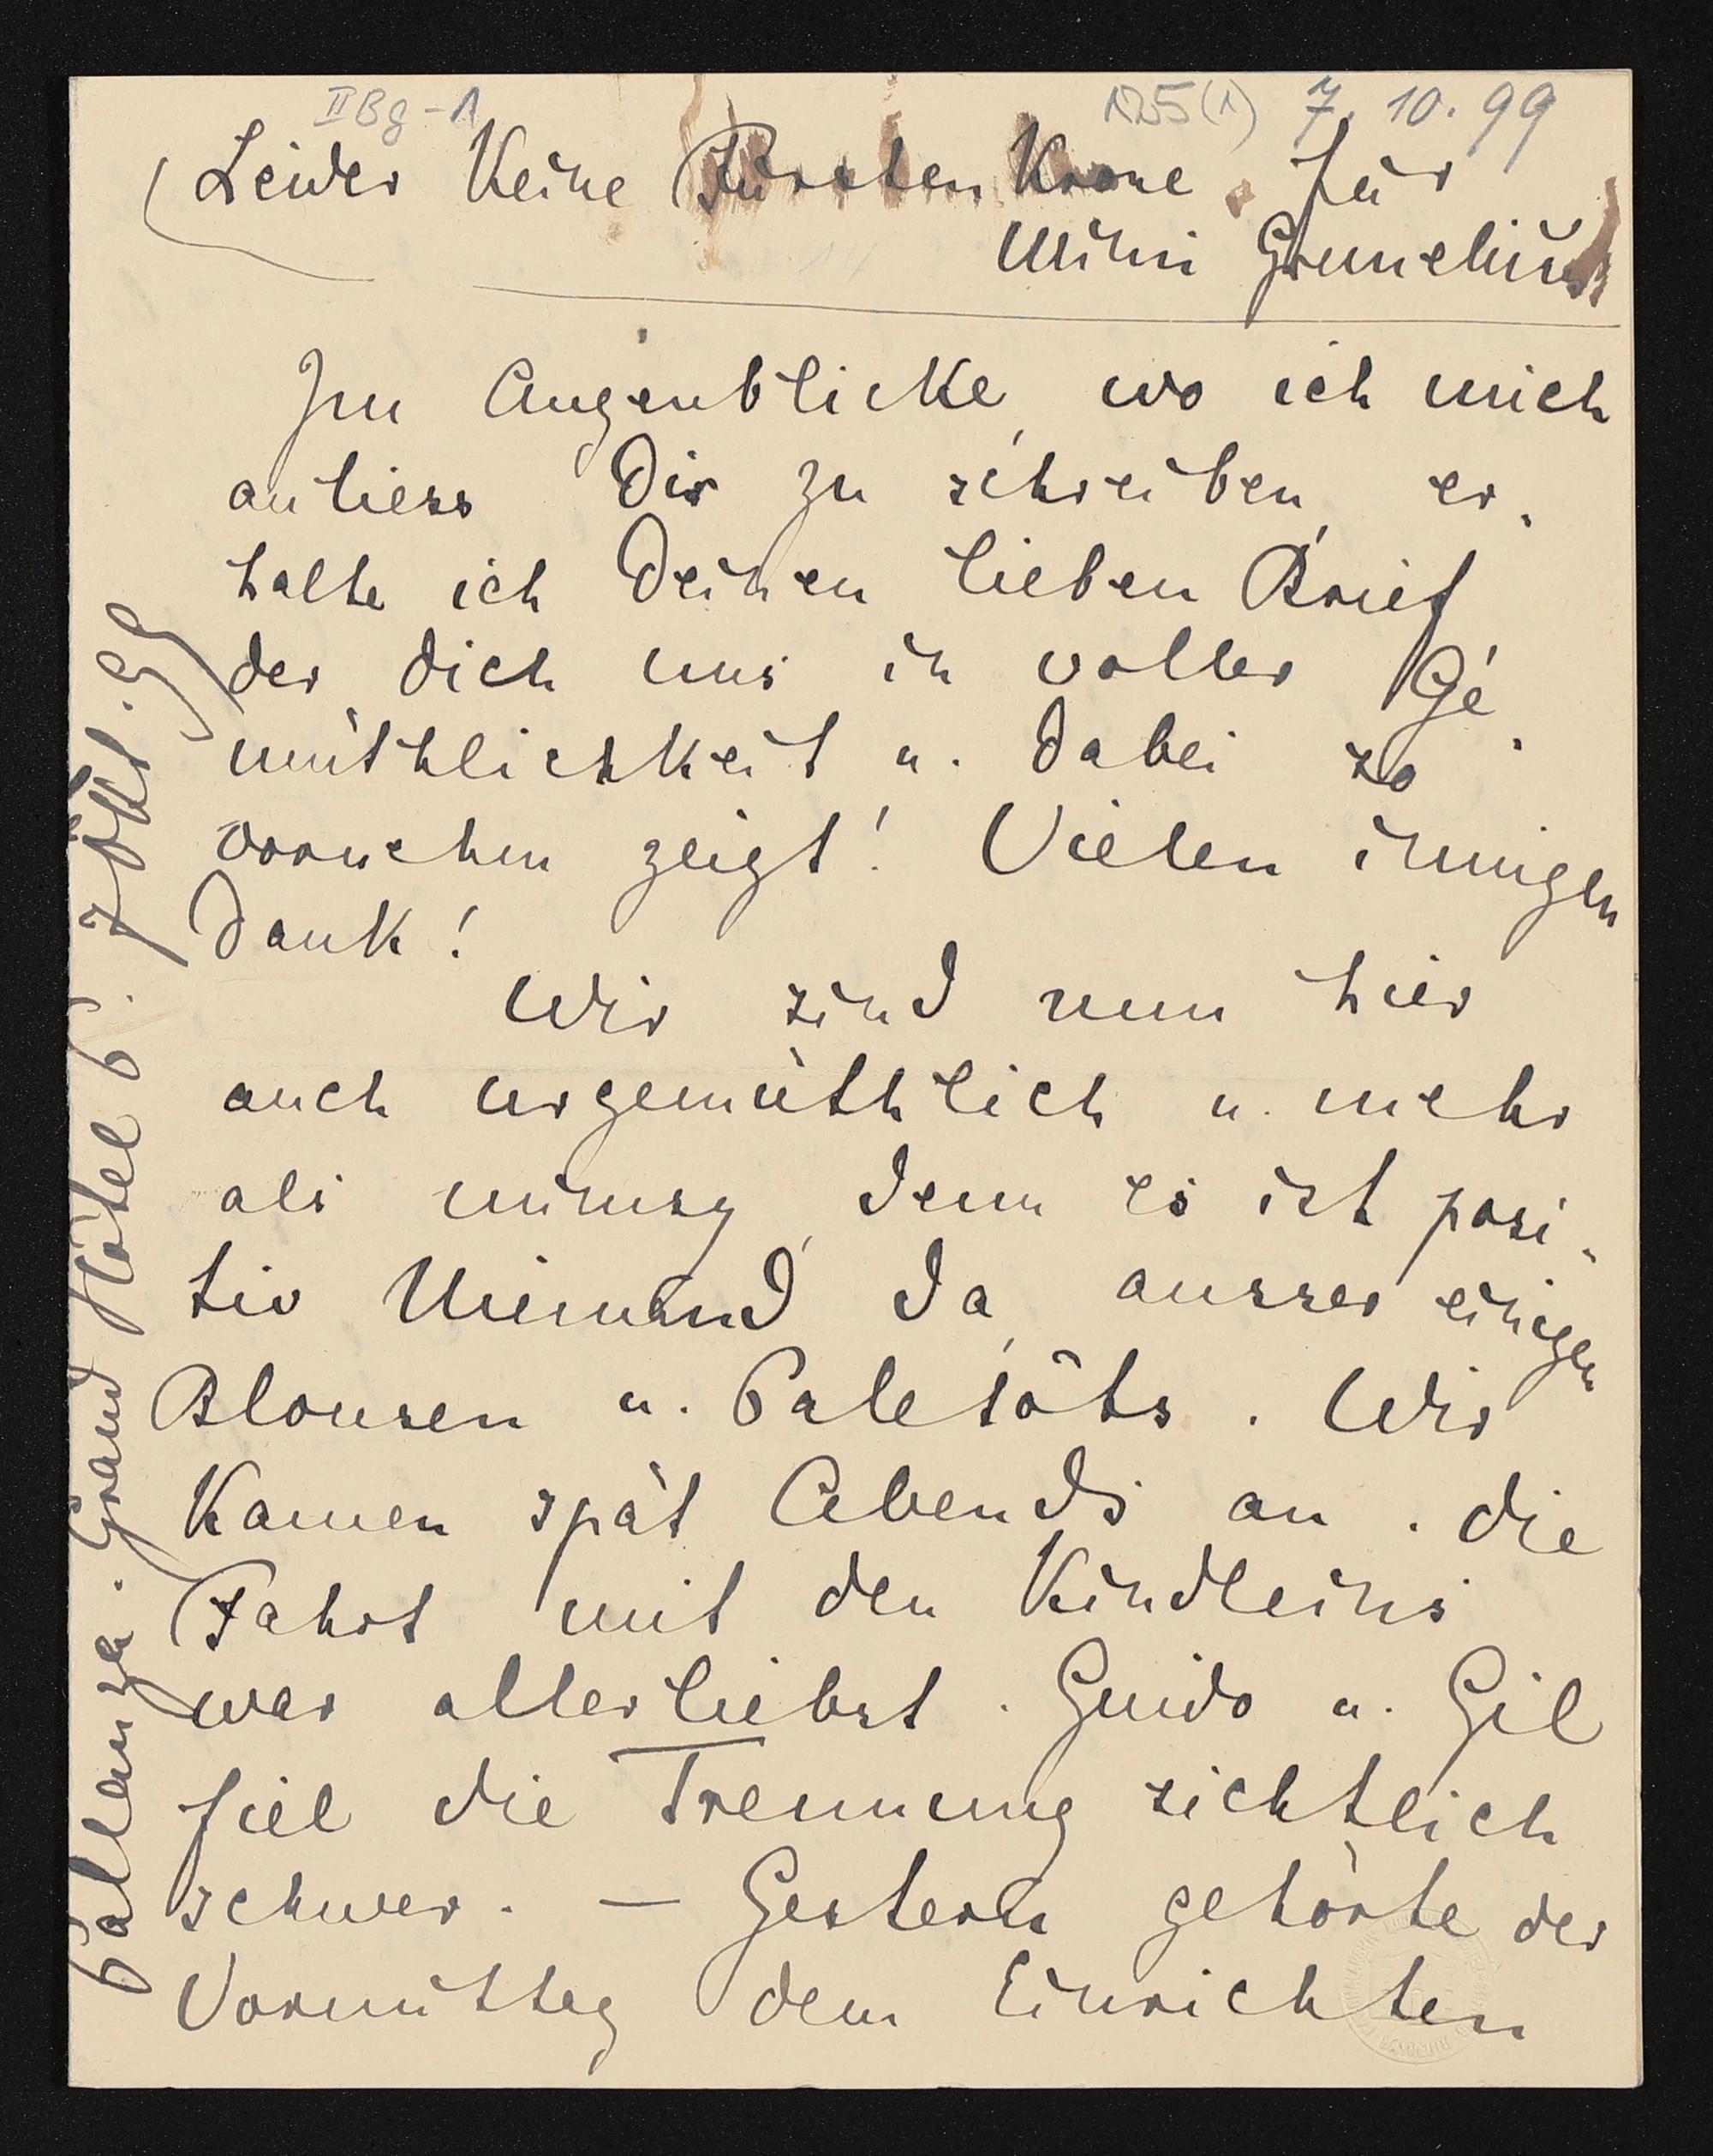 II Bg-1
125(1) 7. 10. 99
(Leider Keine Fürsten Krone für
Mimi Grunelius
Im Augenblicke, wo ich mich
anliess Dir zu schreiben, er-
halte ich Deinen lieben Brief
der dich uns in voller Ge-
müthlichkeit u. dabei so
vornehm zeigt! Vielen innigen
Dank!
Wir sind nun hier
auch urgemüthlich u. mehr
als mimsy, denn es ist posi-
tiv Niemand da, ausser einigen
Blousen u. Paletôts. Wir
Kamen spät Abends an. die
Fahrt mit den Kindleins
war allerliebst. Guido u. Gil
fiel die Trennung sichtlich
schwer. — Gestern gehörte der
Vormittag dem Einrichten
Pallanza. Grand Hôtel P. 7 Okt. 99